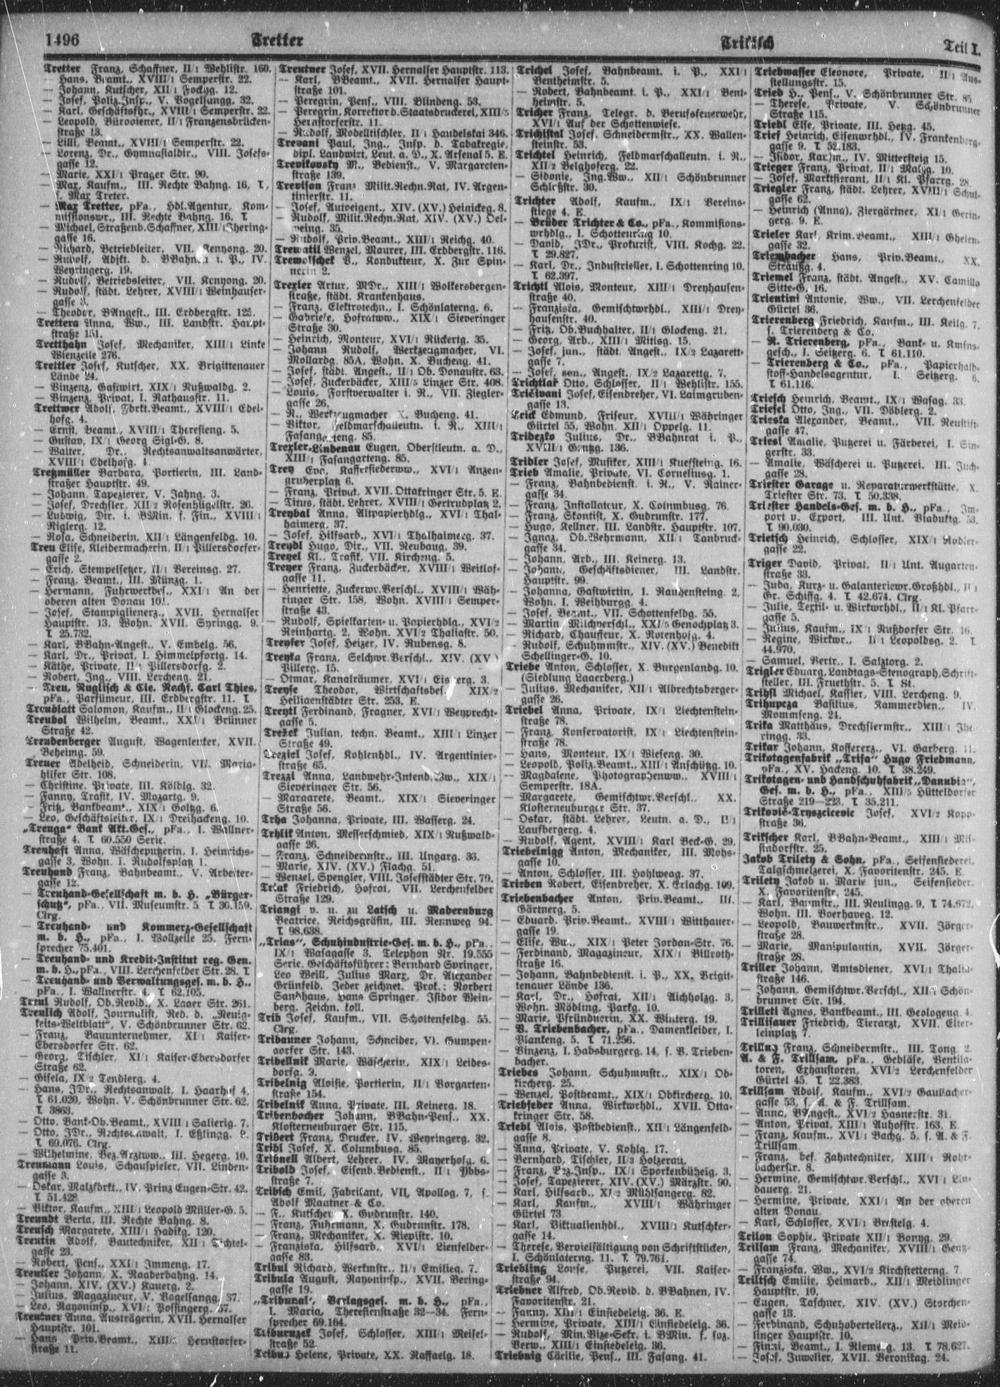 1496 Tretter Tritsch Teil I.
Tretter Franz, Schaffner, II/1 Wehlistr. 160.
— Hans, Beamt., XVIII/1 Semperstr. 22.
— Johann, Kutscher, XII/1 12.
— Josef, Poliz.Insp., V. Vogelsangg. 32.
— Karl, Geschäftsfhr., XVIII/1 Semperstr. 22.
— Leopold, Bürodiener, II/1 Franzensbrücken-
straße 13.
— Lilli, Beamt., XVIII/1 Semperstr. 22.
— Lorenz, Dr., Gymnasialdir., VIII. Josefs-
gasse 12.
— Marie, XXI/1 Prager Str. 90.
— Max, Kaufm., III. Rechte Bahng. 16, T,
s. Max Treter.
— Max Tretter, pFa., Hdl.Agentur, Kom-
missionswr., III. Rechte Bahng. 16. T
— Michael, Straßenb.Schaffner, XIII/1
gasse 16.
— Richard, Betriebsleiter, VII. Kenyong. 20.
— Rudolf, Adjkt. d. BBahnen i. P., IV.
Weyringerg. 19.
— Rudolf, Betriebsleiter, VII. Kenyong. 20.
— Rudolf, städt. Lehrer, XVIII/1 Weinhauser-
gasse
— Theodor, BAngest., III. Erdbergstr. 125.
Trettera Anna, Ww., III. Landstr. Haupt-
straße 151.
Tretthahn Josef, Mechaniker, XIII/1 Linke
Wienzeile 276.
Trettler Josef, Kutscher, XX. Brigittenauer
Lände 24.
— Vinzenz, Gastwirt, XIX/1 Rußwaldg. 2.
— Vinzenz, Privat, I. Rathausstr. 11.
Trettwer Adolf, Beamt., XVIII/1 Edel-
hofg. 4.
— Ernst, Beamt., XVIII/1 Theresieng. 5.
— Gustav, IX/1 Georg Sigl-G. 8.
— Walter, Dr., Rechtsanwaltsanwärter,
XVIII/1 Edelhofg. 4.
Tretzmüller Barbara, Portierin, III. Land-
straßer Hauptstr. 49.
— Johann, Tapezierer, V. Jahng. 3.
— Josef, Drechsler, XII/2 Rosenhügelstr. 26.
— Ludwig, Dir. i. BMin. f. Fin., XVIII/1
Riglerg. 12.
— Rosa, Schneiderin, XII/1 Längenfeldg. 10.
Treu Elise, Kleidermacherin, II/1 Pillersdorfer-
gasse 2.
— Erich, Stempelsetzer, II/1 Vereinsg. 27.
— Franz, Beamt., III. Münzg. 1.
— Hermann, Fuhrwerksbes., XXI/1 An der
oberen alten Donau
— Josef, Stampiglienerz., XVII. Hernalser
Hauptstr. 13, Wohn. XVII. Syringg. 9.
T 25.732.
— Karl, BBahn-Angest., V. Embelg. 56.
— Karl, Dr., Privat, I. Himmelpfortg. 14.
— Käthe, Private, II/1 Pillersdorfg. 2.
— Robert, Ing., VIII. Lercheng. 21.
— Treu, Nuglisch & Cie. Nachf. Carl Thies,
pFa., Parfümeur, III. Erdbergstr. 11. T
Treublatt Salomon, Kaufm., II/1 Glockeng. 25.
Treubol Wilhelm, Beamt., XXI/1 Brünner
Straße 42.
Treudenberger August, Wagenlenker, XVII.
Beheimg. 59.
Treuer Adelheid, Schneiderin, VII. Maria-
hilfer Str. 108.
— Christine, Private, III. Kölblg. 32.
— Fanny, Trafik, IV. Mozartg. 9.
— Fritz, Bankbeamt., XIX/1 Gollg. 6.
— Leo, Geschäftsleiter, IX/1 Dreihackeng. 10.
„Treuga“ Bank Akt.Ges., pFa., I. Wallner-
straße 4. T 60.550 Serie.
Treuhaft Anna, Wäscheputzerin, I. Heinrichs-
gasse 3, Wohn. I. Rudolfsplatz 1.
Treuhand Franz, Bahnbeamt., V. Arbeiter-
gasse 12.
— Treuhand-Gesellschaft m. b. H. „Bürger-
schutz“, pFa., VII. Museumstr. 5. T 36.159.
Clrg.
— Treuhand- und Kommerz-Gesellschaft
m. b. H., pFa., I. Wollzeile 25. Fern-
sprecher 75.401.
— Treuhand- und Kredit-Institut reg. Gen.
m. b. H., pFa., VIII. Lerchenfelder Str. 28. T
— Treuhand- und Verwaltungsges. m. b. H.,
pFa., I. Wallnerstr. 4. T 62.105.
Treul Rudolf, Ob.Revid., X. Laaer Str. 261.
Treulich Adolf, Journalist, Red. d. „Neuig-
keits-Weltblatt“, V. Schönbrunner Str. 62.
— Franz, Bauunternehmer, XI/1 Kaiser-
Ebersdorfer Str. 62.
— Georg, Tischler, XI/1 Kaiser-Ebersdorfer
Straße 62.
— Gisela, IX/2 Tendlerg. 4.
— Hans, JDr., Rechtsanwalt, I. Haarhof 4,
T 61.020, Wohn. V. Schönbrunner Str. 62.
T 3863.
— Otto, Bank-Ob.Beamt., XVIII/1 Salierig. 7.
— Otto, JDr., Rechtsanwalt, I. Eßlingg. 9.
T 69.076. Clrg.
— Wilhelmine, Bez.Arztww., III. Hegerg. 10.
Treumann Louis, Schauspieler, VII. Linden-
gasse 3.
— Oskar, Malzfbrkt., IV. Prinz Eugen-Str. 42.
T 51.428.
— Viktor, Kaufm., XIII/1 Leopold Müller-G. 5.
Treundt Berta, III. Rechte Bahng. 8.
Treusch Margarete, XIII/1 Hadikg. 120.
Treutin Adolf, Bautechniker, XII/1
gasse 23.
— Robert, Pens., XXI/1 Jmmeng. 17.
Treutler Johann, X. Raaberbahng. 14.
— Johann, XIV. (XV.) Kauerg. 2.
— Julius, Magazineur, V. Vogelsangg. 37.
— Leo, Rayoninsp., XVI/1 Possingerg. 37.
Treutner Anna, Austrägerin, XVII. Hernalser
Hauptstr. 101.
— Hans, Priv.Beamt., XIII/1 Hernstorfer-
straße 11.
Treutner Josef, XVII. Hernalser Hauptstr. 113.
— Karl, BBeamt., XVII. Hernalser Haupt-
straße 101.
— Peregrin, Pens., VIII. Blindeng. 53.
— Peregrin, Korrektor d. Staatsdruckerei, XIII/5
Herstorferstr. 11.
— Rudolf, Modelltischler, II/1 Handelskai 346.
Trevani Paul, Ing., Insp. d. Tabakregie,
dipl. Landwirt, Leut. a. D., X. Arsenal 5. E.
Trevikovsky M., Bedienst., V. Margareten-
straße 139.
Trevison Franz, Milit.Rechn.Rat, IV. Argen-
tinierstr. 11.
— Josef, Autoeigent., XIV. (XV.) Heinickeg. 8.
— Rudolf, Milit.Rechn.Rat, XIV. (XV.) Oel-
weing. 35.
— Rudolf, Priv.Beamt., XIII/1 Reichg. 40.
Trewatil Wenzel, Maurer, III. Erdbergstr. 116.
Trewolschek B., Kondukteur, X. Zur Spin-
nerin 2.
Trexler Artur, MDr., XIII/1 Wolkersbergen-
straße, städt. Krankenhaus.
— Franz, Elektrotechn., I. Schönlaterng. 6.
— Gabriele, Hofratsww., XIX/1 Sieveringer
Straße 30.
— Heinrich, Monteur, XVI/1 Rückertg. 35.
— Johann Rudolf, Werkzeugmacher, VI.
Mollardg. 85A, Wohn. X. Bucheng. 41.
— Josef, städt. Angest., II/1 Ob. Donaustr. 63.
— Josef, Zuckerbäcker, XIII/5 Linzer Str. 408.
— Louis, Forstverwalter i. R., VII. Ziegler-
gasse 26.
— R., Werkzeugmacher, X. Bucheng. 41.
— Viktor, Feldmarschalleutn. i. R., XIII/1
Fasangarteng. 85.
Trexler-Lindenau Eugen, Oberstleutn. a. D.,
XIII/1 Fasangartenstr. 85.
Trey Eva, Kaffersiederww., XVI/1 Anzen-
grubergplatz 6.
— Franz, Privat, XVII. Ottakringer Str. 5. E.
— Titus, städt. Lehrer, XVIII/1 Gertrudplatz 2.
Treybal Anna, Altpapierhdlg., XVI/1 Thal-
haimerg. 37.
— Josef, Hilfsarb., XVI/1 Thalhaimerg. 37.
Treydl Hugo, Dir., VII. Neubaug. 39.
Treyel Kl., Trafik, VII. Kircheng. 5.
Treyer Franz, Zuckerbäcker, XVIII/1 Weitlof-
gasse 11.
— Henriette, Zuckerw.Verschl., XVIII/1 Wäh-
ringer Str. 158, Wohn. XVIII/1 Semper-
straße 43.
— Rudolf, Spielkarten- u. Papierhdlg., XVI/2
Reinhartg. 2, Wohn. XVI/2 Thaliastr. 50.
Treyser Josef, Heizer, IV. Rubensg. 8.
Treyta Franz, Selchwr.Verschl., XIV. (XV.)
Pillerg. 15.
— Otmar, Kanalräumer, XVI/1 3.
Treyse Theodor, Wirtschaftsbes., XIX/2
Heiligenstädter Str. 253. E.
Treytl Ferdinand, Fragner, XVI/1 Weyprecht-
gasse 5.
Trežek Julian, techn. Beamt., XIII/1 Linzer
Straße 49.
Trezziel Josef, Kohlenhdl., IV. Argentinier-
straße 65.
Trezzi Anna, Landwehr-Intend.Ww., XIX/1
Sieveringer Str. 56.
— Margarete, Beamt., XIX/1 Sieveringer
Straße 56.
Trha Johanna, Private, III. Wasserg. 24.
Trhlik Anton, Messerschmied, XIX/1 Rußwald-
gasse 26.
— Franz, Schneidernstr., III. Ungarg. 33.
— Marie, XIV. (XV.) Flachg. 51.
— Wenzel, Spengler, VIII. Josefstädter Str. 79.
Friedrich, Hofrat, VII. Lerchenfelder
Straße 129.
Triangi v. u. zu Latsch u. Maderuburg
Beatrice, Reichsgräfin, III. Rennweg 94.
T 98.638.
„Trias“, Schuhindustrie-Ges. m. b. H., pFa.,
IX/1 Wasagasse 3. Telephon Nr. 19.555
Serie. Geschäftsführer: Bernhard Springer,
Leo Weill, Julius Marx, Dr. Alexander
Grünfeld. Jeder zeichnet. Prok.: Norbert
Sandhaus, Hans Springer, Isidor Wein-
berg. Zeichn. koll.
Trib Josef, Kaufm., VII. Schottenfeldg. 55.
Clrg.
Tribauner Johann, Schneider, VI. Gumpen-
dorfer Str. 143.
Tribellnit Marie, Wäscherin, XIX/1 Leides-
dorfg. 9.
Tribelnig Aloisie, Portierin, II/1 Vorgarten-
straße 154.
Tribelnit Anna, Private, III. Keinerg. 18.
Tribenbacher Johann, BBahn-Pens., XX.
Klosterneuburger Str. 115.
Tribert Franz, Drucker, IV. Weyringerg. 32.
Tribl Josef, X. Columbusg. 85.
Tribnell Albert, Lehrer, IV. Mayerhofg. 6.
Tribold Josef, Eisenb.Bedienst., II/1 Ybbs-
straße 7.
Tribsch Emil, Fabrikant, VII. Apollog. 7, s.
Adolf Mautner & Co.
— F., Kutscher, X. Gudrunstr. 140.
— Franz, Fuhrmann, X. Gudrunstr. 178.
— Franz, Mechaniker, X. Rieplstr. 10.
— Franziska, Hilfsarb., XVI/1 Lienfelder-
gasse 83.
Tribul Richard, Werkmstr., II/1 Emilieg. 7.
Tribula August, Rayoninsp., XVII. Bering-
gasse 19.
„Tribunal“, Verlagsges. m. b. H., pFa.,
I. Maria Theresienstraße 32—34. Fern-
sprecher 69.164.
Tiburuzel Josef, Schlosser, XIII/1 Meisel-
straße 52.
Tribus Helene, Private, XX. Raffaelg. 18.
Trichel Josef, Bahnbeamt. i. P., XXI/1
Bentheimstr. 5.
— Robert, Bahnbeamt. i. P., XXI/1 Bent-
heimstr. 5.
Tricher Franz, Telegr. d. Berufsfeuerwehr,
XVI/1 Auf der Schottwiese.
Trichtstal Josef, Schneidermstr., XX. Wallen-
steinstr. 53.
Trichtel Heinrich, Feldmarschalleutn. i. R.,
XII/2 Belghoferg. 22.
— Sidonie, Ing.Ww., XII/1 Schönbrunner
Schloßstr. 30.
Trichter Adolf, Kaufm., IX/1 Vereins-
stiege 4. E.
— Brüder Trichter & Co., pFa., Kommissions-
wrhdlg., I. Schottenring 10.
— David, JDr., Prokurist, VIII. Kochg. 22.
T 29.827.
— Karl, Dr., Industrieller, I. Schottenring 10.
T 62.397.
Trichtl Alois, Monteur, XIII/1 Dreyhausen-
straße 40.
— Franziska, Gemischtwrhdl., XIII/1 Drey-
hausenstr. 40.
— Fritz, Ob.Buchhalter, II/1 Glockeng. 21.
— Georg, Arb., XIII/1 Mitisg. 15.
— Josef, jun., städt. Angest., IX/2 Lazarett-
gasse 7.
— Josef, sen., Angest., IX/2 Lazarettg. 7.
Trichtlar Otto, Schlosser, II/1 Wehlistr. 155.
Tricivani Josef, Eisendreher, VI. Laimgruben-
gasse 13.
Trick Edmund, Friseur, XVIII/1 Währinger
Gürtel 55, Wohn. XII/1 Oppelg. 11.
Tribezko Julius, Dr., BBahnrat i. P.,
XVIII/1 Gentzg. 136.
Tridler Josef, Musiker, XIII/1 Kuefsteing. 16.
Trieb Amalie, Private, VI. Corneliusg. 1.
— Franz, Bahnbedienst. i. R., V. Rainer-
gasse 34.
— Franz, Installateur, X. Columbusg. 76.
— Franz, Skontist, X. Gudrunstr. 177.
— Hugo, Kellner, III. Landstr. Hauptstr. 107.
— Ignaz, Ob.Wehrmann, XII/1 Tanbruck-
gasse 34.
— Johann, Arb., III. Keinerg. 13.
— Johann, Geschäftsdiener, III. Landstr.
Hauptstr. 99.
— Johanna, Gastwirtin, I. Rauhensteing. 2,
Wohn. I. Weihburgg. 4.
— Josef, Beamt., VII. Schottenfeldg. 55.
— Martin, Milchverschl., XXI/5 Genochplatz 3.
— Richard, Chauffeur, X. Rotenhofg. 4.
— Rudolf, Schuhmmstr., XIV. (XV.) Benedikt
Schellinger-G. 10.
Triebe Anton, Schlosser, X. Burgenlandg. 10.
(Siedlung Laaerberg.)
— Julius, Mechaniker, XII/1 Albrechtsberger-
gasse 26.
Triebel Anna, Private, IX/1 Liechtenstein-
straße 78.
— Franz, Konservatorist, IX/1 Liechtenstein-
straße 78.
— Hans, Monteur, IX/1 Wieseng. 30.
— Leopold, Poliz.Beamt., XIII/1 Anschützg. 10.
— Magdalene, Photographenww., XVIII/1
Semperstr. 18A.
— Margarete, Gemischtwr.Verschl., XX.
Klosterneuburger Str. 37.
— Oskar, städt. Lehrer, Leutn. a. D., II/1
Laufbergerg. 4.
— Rudolf, Agent, XVIII/1 Karl Beck-G. 29.
Triebelnigg Anton, Mechaniker, III. Mohs-
gasse 10.
— Anton, Schlosser, III. Hohlweg. 37.
Trieben Robert, Eisendreher, X. Erlachg. 109.
Triebenbacher Anton, Priv.Beamt., III.
Gärtnerg. 5.
— Eduard, Priv.Beamt., XVIII/1 Witthauer-
gasse 19.
— Elise, Ww., XIX/1 Peter Jordan-Str. 76.
— Ferdinand, Magazineur, XIX/1 Billroth-
straße 16.
— Johann, Bahnbedienst. i. P., XX. Brigit-
tenauer Lände 136.
— Karl, Dr., Hofrat, XII/1 Aichholzg. 3,
Wohn. Mödling, Parkg. 10.
— Marie, Pfründnerin, XX. Winterg. 19.
— B. Triebenbacher, pFa., Damenkleider, I.
Plankeng. 5. T 71.256.
— Vinzenz, I. Habsburgerg. 14, s. B. Trieben-
bacher.
Triebes Johann, Schuhmmstr., XIX/1 Ob-
kircherg. 25.
— Wenzel, Postbeamt., XIX/1 Obkircherg. 10.
Triebseder Anna, Wirkwrhdl., XVII. Otta-
kringer Str. 58.
Triebl Alois, Postbedienst., XII/1 Längenfeld-
gasse 8.
— Anna, Private, V. Kohlg. 17.
— Bernhard, Tischler, II/2 Holzerau.
— Franz, Bez.Insp., IX/1 Sporkenbühelg. 3.
— Josef, Tapezierer, XIV. (XV.) Märzstr. 90.
— Karl, Hilfsarb., XI/2 Mühlsangerg. 82.
— Karl, Kaufm., XVIII/1 Währinger
Gürtel 73.
— Karl, Viktualienhdl., XVIII/1 Kutschker-
gasse 14.
— Therese, Vervielfältigung von Schriftstücken,
I. Schönlaterng. 11. T 79.761.
Triebling Leonie, Putzerei, VII. Kaiser-
straße 94.
Triebner Alfred, Ob.Revid. d. BBahnen, IV.
Favoritenstr. 21.
— Fanny, XII/1 Einsiedeleig. 36. E.
— Hermine, Private, XIII/1 Einsiedeleig. 36.
— Rudolf, Min.Vize-Sekr. i. BMin. f. soz.
Verw., XIII/1 Einsiedeleig. 36.
Triebnig Cäcilie, Pens., III. Fasang. 41.
Triebwasser Eleonore, Private, II/1 Aus-
stellungsstr. 15.
Tried H., Pens., V. Schönbrunner Str. 85
— Therese, Private, V. Schönbrunner
Straße 115.
Triedl Else, Private, III. Hetzg. 45.
Trief Heinrich, Eisenwrhdl., IV. Frankenberg-
gasse 9. T 52.183.
— Isidor, Kaufm., IV. Mittersteig 15.
Trieger Franz, Private, II/1 Malzg. 10.
— Josef, Marktfierant, II/1 Kl. Pfarrg. 28.
Triegler Franz, städt. Lehrer, XVIII/1 Schul-
gasse 62.
— Heinrich (Anna), Ziergärtner, XI/1 Gerin-
gerg. 9. E.
Trieler Karl, Krim.Beamt., XIII/1 Ghelen-
gasse 32.
Triembacher Hans, Priv.Beamt., XX.
Straußg. 4.
Triemel Franz, städt. Angest., XV. Camillo
Sitte-G. 16.
Trientini Antonie, Ww., VII. Lerchenfelder
Gürtel 36.
Trierenberg Friedrich, Kaufm., III. Keilg. 7,
s. Trierenberg & Co.
— R. Trierenberg, pFa., Bank- u. Kmfns-
gesch., I. Seitzerg. 6. T 61.110.
— Trierenberg & Co., pFa., Papierhalb-
stoff-Handelsagentur, I. Seitzerg. 6.
T 61.116.
Triesch Heinrich, Beamt., IX/1 Wasag. 33.
Triesel Otto, Ing., VII. Döblerg. 2.
Trieska Alexander, Beamt., VII. Neustift-
gasse 47.
Triesl Amalie, Putzerei u. Färberei, I. Sin-
gerstr. 33.
— Amalie, Wäscherei u. Putzerei, III. Juch-
gasse 28.
Triester Garage u. Reparaturwerkstätte, X.
Triester Str. 73. T 50.338.
Triester Handels-Ges. m. b. H., pFa., Im-
port u. Export, III. Unt. Viaduktg. 53.
T 90.030.
Trietsch Heinrich, Schlosser, XIX/1
gasse 22.
Triger David, Privat, II/1 Unt. Augarten-
straße 33.
— Juda, Kurz- u. Galanteriewr.Großhdl., II/1
Gr. Schiffg. 4. T 42.674. Clrg.
— Julie, Textil- u. Wirkwrhdl., II/1 Kl. Pfarr-
gasse 5.
— Julius, Kaufm., IX/1 Rußdorfer Str. 16.
— Regine, Wirkwr., II/1 Leopoldsg. 2. T
44.970.
— Samuel, Vertr., I. Salztorg. 2.
Trigler Eduard, Landtags-Stenograph, Schrift-
steller, III. Fruethstr. 5. T 81.
Trihsl Michael, Kassier, VIII. Lercheng. 9.
Trihupcza Basilius, Kammerdien., IV.
Mommseng. 24.
Trika Matthäus, Drechslermstr., XIII/1 Ihe-
ringg. 33.
Trikar Johann, Koffererz., VI. Garberg. 11.
Trikotagenfabrik „Trifa“ Hugo Friedmann,
pFa., XV. Hackeng. 10. T 38.249.
Trikotagen- und Handschuhfabrik „Danubia“,
Ges. m. b. H., pFa., XIII/5 Hütteldorfer
Straße 219—223. T 35.211.
Trikovic-Tryszeicevic Josef, XVI/2 Kopp-
straße 36.
Trikscher Karl, BBahn-Beamt., XIII/1 Mi-
stindorfstr. 25.
Jakob Trilety & Sohn, pFa., Seifensiederei,
Talgschmelzerei, X. Favoritenstr. 245. E.
Trilety Jakob u. Marie, jun., Seifensieder.
X. Favoritenstr. 245.
— Karl, Baumstr., III. Reulingg. 9, T 74.672,
Wohn. III. Boerhaveg. 12.
— Leopold, Bauwerkmstr., XVII. Jörger-
straße 28.
— Marie, Manipulantin, XVII. Jörger-
straße 28.
Triller Johann, Amtsdiener, XVI/1 Thalia-
straße 146.
— Johann, Gemischtwr.Verschl., XII/1 Schön-
brunner Str. 194.
Trilleti Agnes, Bankbeamt., III. Geologeng. 4.
Trillsauer Friedrich, Tierarzt, XVII. Elter-
leinplatz 7.
Franz, Schneidermstr., III. Tong. 2.
A. & F. Trillsam, pFa., Gebläse, Ventila-
toren, Exhaustoren, XVI/2 Lerchenfelder
Gürtel 45. T 22.383.
Trillsam Adolf, Kaufm., XVI/2 Gaullacher-
gasse 53, s. A. & F. Trillsam.
— Anna, BAngest., XVI/2 Hasnerstr. 31.
— Anton, Privat, XIII/1 Auhofstr. 163. E.
— Franz, Kaufm., XVI/1 Bachg. 5, s. A. & F.
Trillsam.
— Franz, bef. Zahntechniker, XIII/1 Rohr-
bacherstr. 8.
— Hermine, Gemischtwr.Verschl., XVI/1 Lin-
dauerg. 21.
— Hermine, Private, XXI/1 An der oberen
alten Donau.
— Karl, Schlosser, XVI/1 4.
Trilon Sophie, Private, XII/1 Bonyg. 29.
Trilsam Franz, Mechaniker, XVIII/1 Gentz-
gasse 74.
— Franziska, Ww., XVI/2 Kirchstetterng. 7.
Triltsch Emilie, Heimarb., XII/1 Meidlinger
Hauptstr. 10.
— Eugen, Taschner, XIV. (XV.) Storchen-
gasse 13.
— Ferdinand, Schuhoberteilherrichter, XII/1 Meid-
linger Hauptstr. 10.
— Beamt., I. Riemerg. 13. T 78.627.
— Josef, Juwelier, XVII. Beronikag. 24.